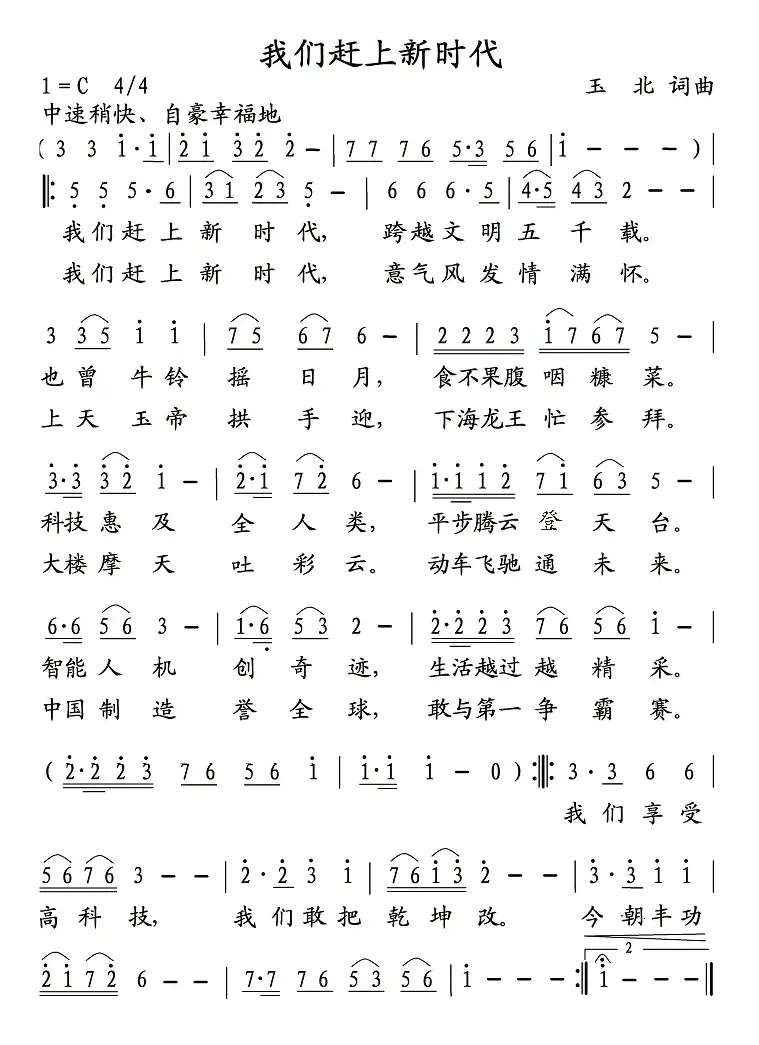 我们赶上新时代
1=C 4/4 玉 北 词曲
中速稍快、自豪幸福地
( 3 3 1·1 | 2 1 3 2 2 – | 7 7 7 6 5·3 5 6 | 1 – – – ) |
‖: 5 5 5·6 | 3 1 2 3 5 – | 6 6 6·5 | 4·5 4 3 2 – – |
我们赶 上 新 时 代, 跨越文 明 五 千 载。
我们赶 上 新 时 代, 意气风 发 情 满 怀。
3 3 5 1 1 | 7 5 6 7 6 – | 2 2 2 3 1 7 6 7 5 – |
也 曾 牛 铃 摇 日 月, 食不果腹 咽 糠 菜。
上 天 玉 帝 拱 手 迎, 下海龙王 忙 参 拜。
3·3 3 2 1 – | 2·1 7 2 6 – | 1·1 1 2 7 1 6 3 5 – |
科技 惠 及 全 人 类, 平步腾云 登 天 台。
大楼 摩 天 吐 彩 云。 动车飞驰 通 未 来。
6·6 5 6 3 – | 1·6 5 3 2 – | 2·2 2 3 7 6 5 6 1 – |
智能 人 机 创 奇 迹, 生活越过 越 精 采。
中国 制 造 誉 全 球, 敢与第一 争 霸 赛。
( 2·2 2 3 7 6 5 6 1 | 1·1 1 – 0 ) :‖: 3·3 6 6 |
我 们 享 受
5 6 7 6 3 – – | 2·2 3 1 | 7 6 1 3 2 – – | 3·3 1 1 |
高 科 技, 我 们 敢 把 乾 坤 改。 今 朝 丰 功
2
2 1 7 2 6 – – | 7·7 7 6 5 3 5 6 | 1 – – – :‖ 1 – – – ‖